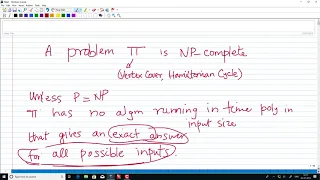 A problem Π is NP-complete
(Vertex Cover, Hamiltonian Cycle)
Unless P = NP
Π has no algm running in time poly in
input size
that gives an exact answer
for all possible inputs.